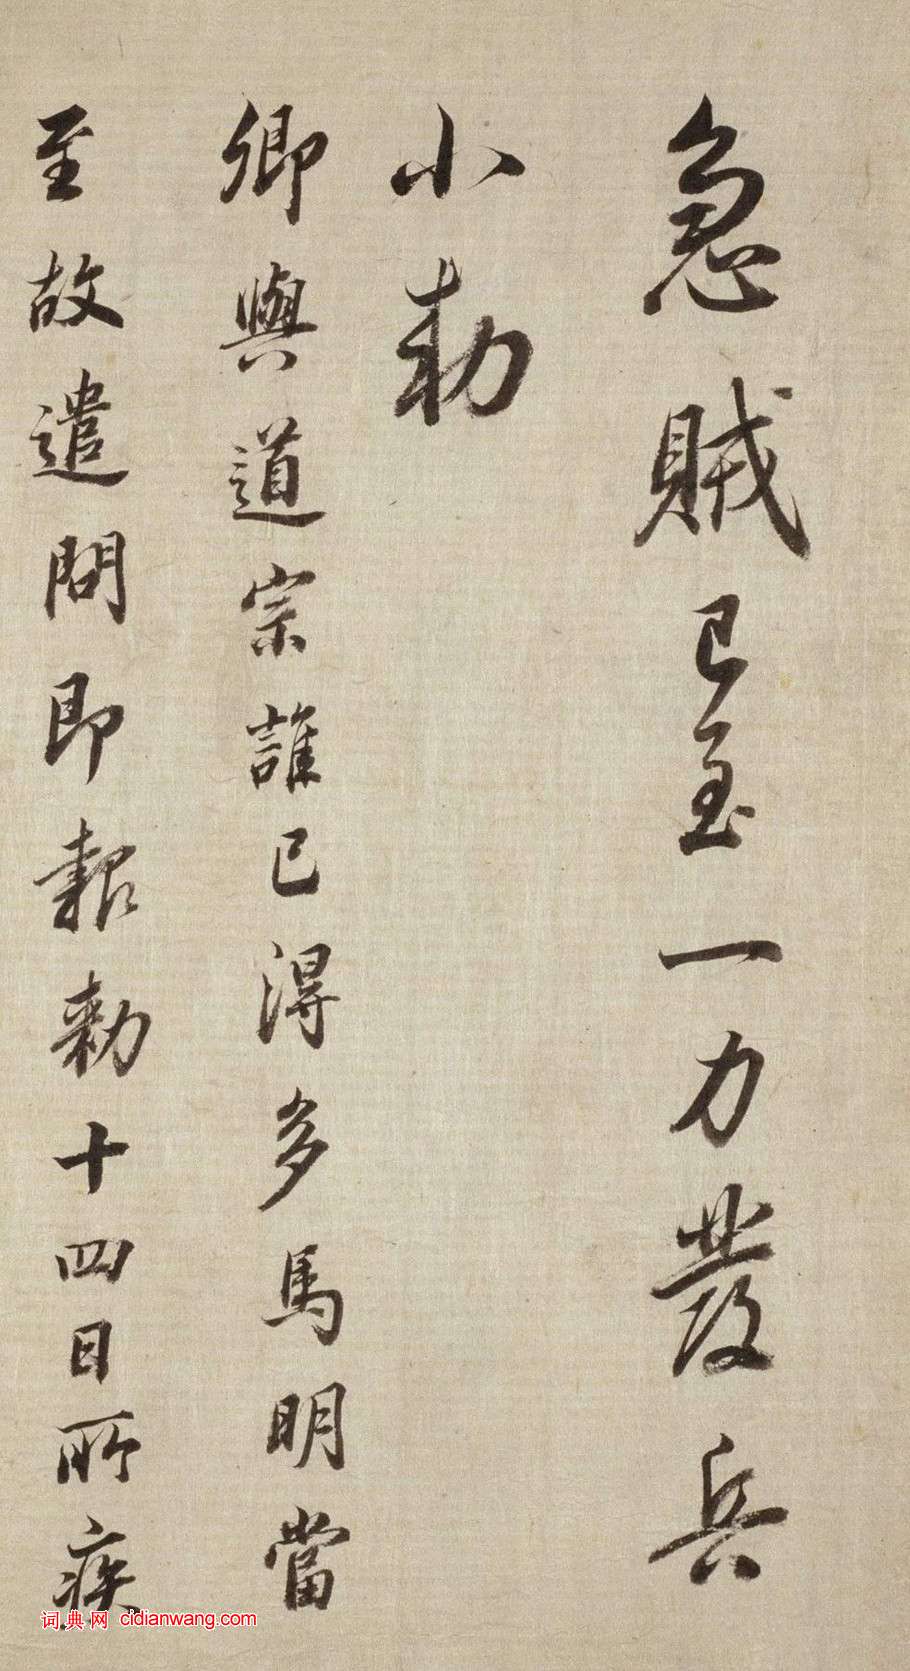 急賊已至一力發兵
小勅
卿與道宗誰已得多馬明當
至故遣問即報勅十四日所疾
词典网 cidianwang.com